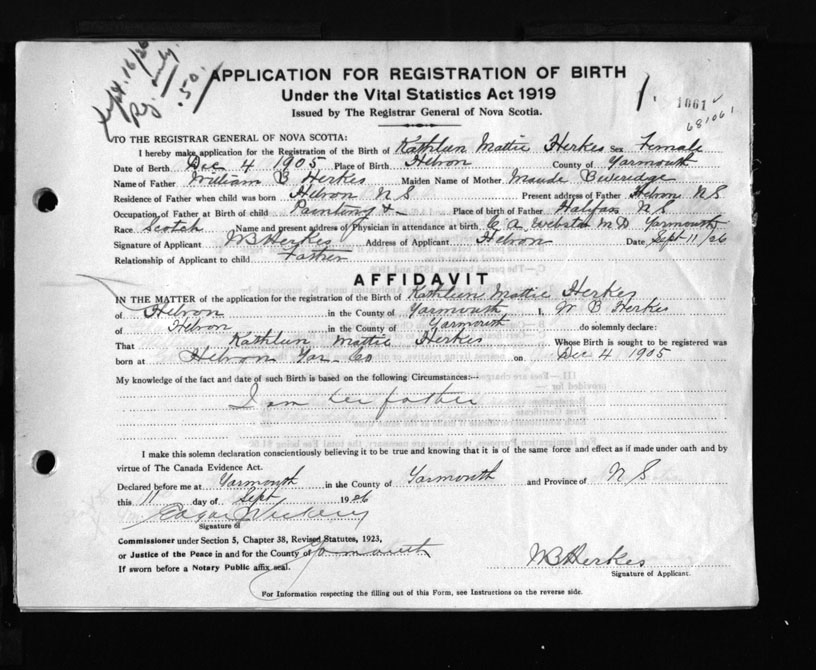 Sept. 16/26
Reg. only.
.50.
APPLICATION FOR REGISTRATION OF BIRTH
Under the Vital Statistics Act 1919
Issued by The Registrar General of Nova Scotia.
1061
681061
TO THE REGISTRAR GENERAL OF NOVA SCOTIA:
I hereby make application for the Registration of the Birth of Kathleen Mattie Herkes Sex Female
Date of Birth Dec 4 1905 Place of Birth Hebron County of Yarmouth
Name of Father William B Herkes Maiden Name of Mother Maude Beveridge
Residence of Father when child was born Hebron N S Present address of Father Hebron N S
Occupation of Father at Birth of child Painting & Place of birth of Father Halifax N S
Race Scotch Name and present address of Physician in attendance at birth C A Webster M D Yarmouth
Signature of Applicant WB Herkes Address of Applicant Hebron Date Sept 11/26
Relationship of Applicant to child Father
AFFIDAVIT
IN THE MATTER of the application for the registration of the Birth of Kathleen Mattie Herkes
of Hebron in the County of Yarmouth I, W B Herkes
of Hebron in the County of Yarmouth do solemnly declare:
That Kathleen Mattie Herkes Whose Birth is sought to be registered was
born at Hebron Yar Co on Dec 4 1905
My knowledge of the fact and date of such Birth is based on the following Circumstances:--
I am her father
I make this solemn declaration conscientiously believing it to be true and knowing that it is of the same force and effect as if made under oath and by
virtue of The Canada Evidence Act.
Declared before me at Yarmouth in the County of Yarmouth and Province of N S
this 11 day of Sept 1926
Edgar
Signature of
Commissioner under Section 5, Chapter 38, Revised Statutes, 1923,
or Justice of the Peace in and for the County of Yarmouth
If sworn before a Notary Public affix seal.
WB Herkes
Signature of Applicant.
For Information respecting the filling out of this Form, see Instructions on the reverse side.